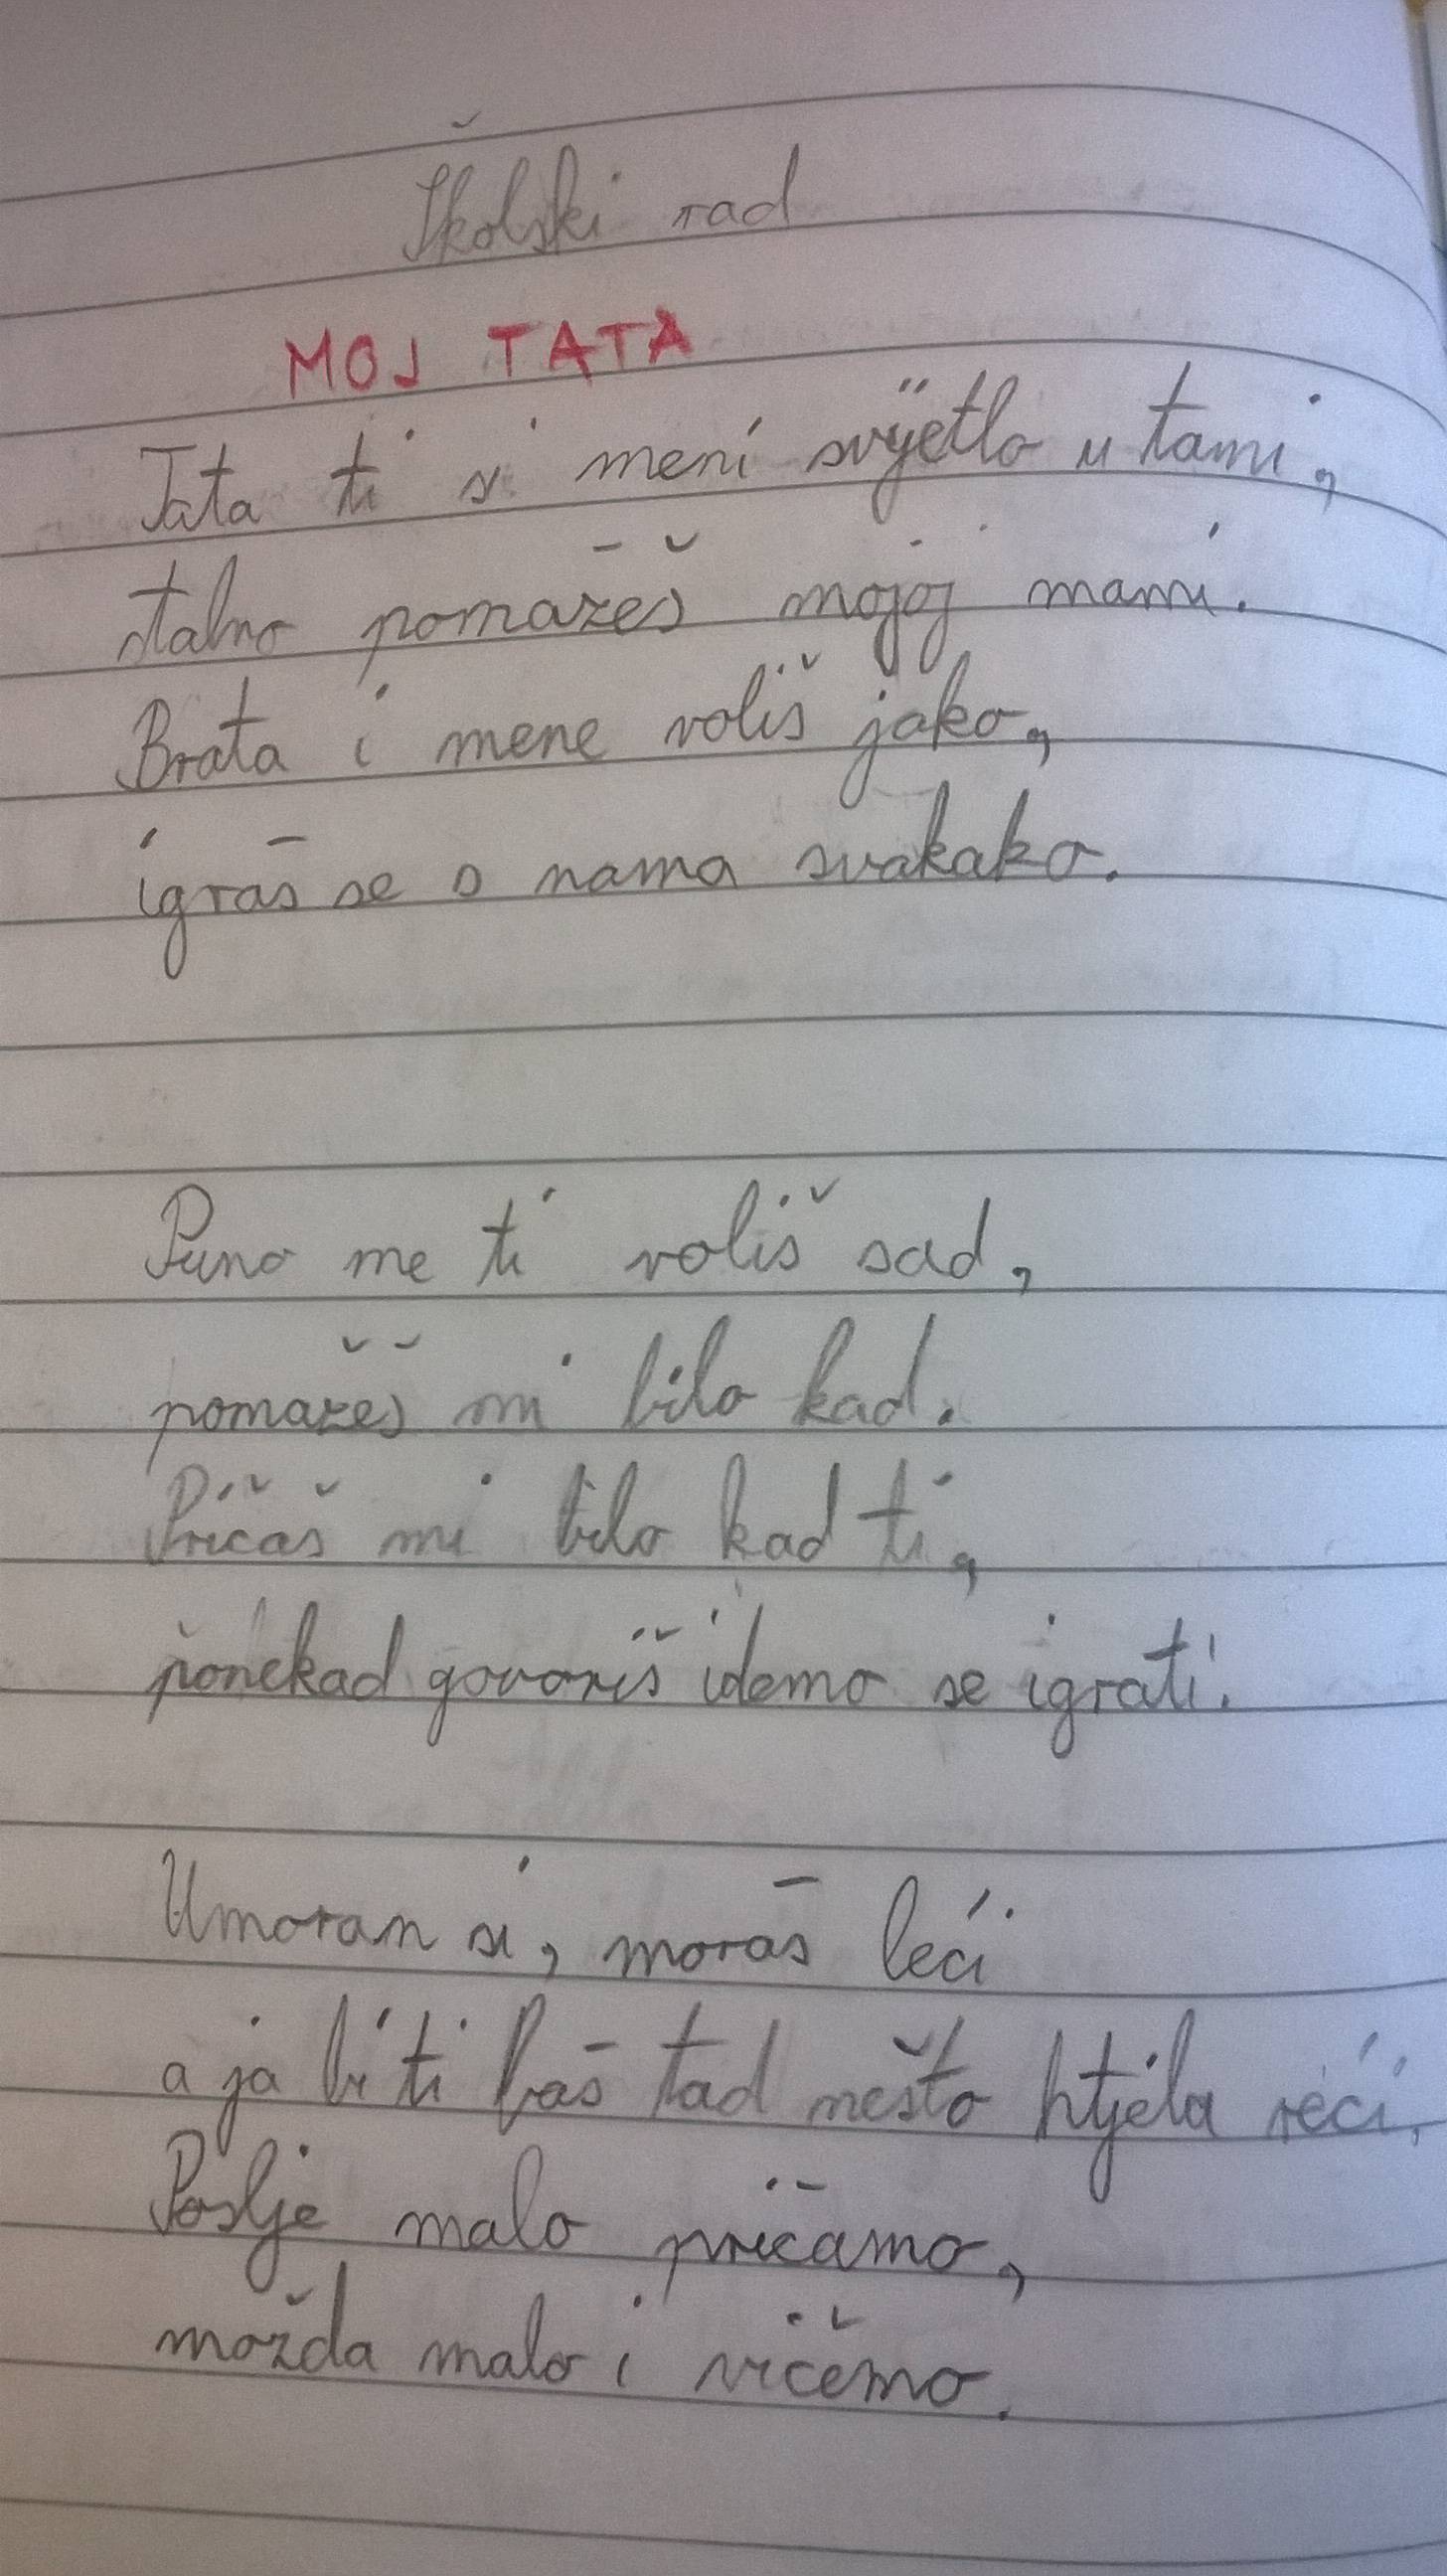 Školski rad
MOJ TATA
Tata ti si meni svijetlo u tami,
stalno pomažeš mojoj mami.
Brata i mene voliš jako,
igraš se s nama svakako.
Puno me ti voliš sad,
pomažeš mi bilo kad.
Pričaš mi bilo kad ti,
ponekad govoriš idemo se igrati.
Umoran si, moraš leći
a ja bi ti baš tad nešto htjela reći.
Poslje malo pričamo,
možda malo i vičemo.